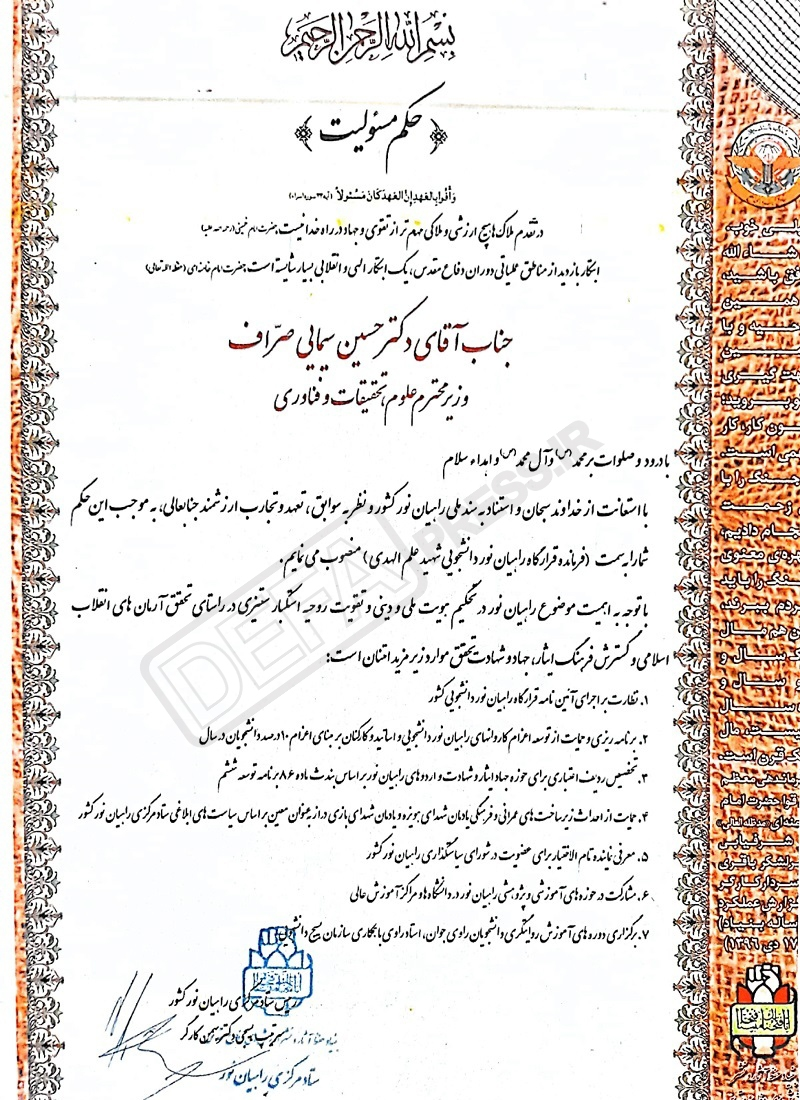 بسم الله الرحمن الرحیم
حکم مسئولیت
وَ أَوْفُوا بِالْعَهْدِ إِنَّ الْعَهْدَ كَانَ مَسْئُولًا
در تقدم ملاک‌ها هیچ ارزشی و ملاکی مهم تر از تقوی و جهاد در راه خدا نیست حضرت امام خمینی (رحمت الله علیه)
ابتکار بازدید از مناطق عملیاتی دوران دفاع مقدس، یک ابتکار الهی و انقلابی بسیار شایسته است حضرت امام خامنه‌ای (حفظه الله تعالی)
جناب آقای دکتر حسین سیمایی صرّاف
وزیر محترم علوم، تحقیقات و فناوری
با درود و صلوات بر محمد (ص) و آل محمد (ص) و اهداء سلام
با استعانت از خداوند سبحان و استناد به سند ملی راهیان نور کشور و نظر به سوابق، تعهد و تجارب ارزشمند جنابعالی، به موجب این حکم
شما را به سمت (فرمانده قرارگاه راهیان نور دانشجویی شهید علم الهدی) منصوب می نمایم.
با توجه به اهمیت موضوع راهیان نور در تحکیم هویت ملی و دینی و تقویت روحیه استکبار ستیزی در راستای تحقق آرمان های انقلاب
اسلامی و گسترش فرهنگ ایثار، جهاد و شهادت تحقق موارد زیر مزید امتنان است:
۱. نظارت بر اجرای آئین نامه قرارگاه راهیان نور دانشجویی کشور
۲. برنامه ریزی و حمایت از توسعه اعزام کاروانهای راهیان نور دانشجویی و اساتید و کارکنان بر مبنای اعزام ۱۰ درصد دانشجویان در سال
۳. تخصیص ردیف اعتباری برای حوزه جهاد ایثار و شهادت و اردوهای راهیان نور براساس بند ث ماده ۸۶ برنامه توسعه ششم
۴. حمایت از احداث زیرساخت های عمرانی و فرهنگی یادمان شهدای هویزه و یادمان شهدای بازی دراز به عنوان معین بر اساس سیاست های ابلاغی ستاد مرکزی راهیان نور کشور
۵. معرفی نماینده تام الاختیار برای عضویت در شورای سیاستگذاری راهیان نور کشور
۶. مشارکت در حوزه های آموزشی و پژوهشی راهیان نور در دانشگاه ها و مراکز آموزش عالی
۷. برگزاری دوره های آموزش روایتگری دانشجویان راوی جوان، استاد راوی با همکاری سازمان بسیج دانشجویی
رئیس ستاد مرکزی راهیان نور کشور
سرتیپ بسیجی دکتر بهمن کارگر
ستاد مرکزی راهیان نور
DEFAPRESS.IR
شاء الله
باشید،
همین
و با
کار
است.
را
زحمت
دادیم،
معنوی
را باید
ببرند،
هم مال
سال و
سال
مال
قرن است.
معظم
حضرت امام
باقری
کارگر
عملکرد
۱۷ دی ۱۳۹۶)